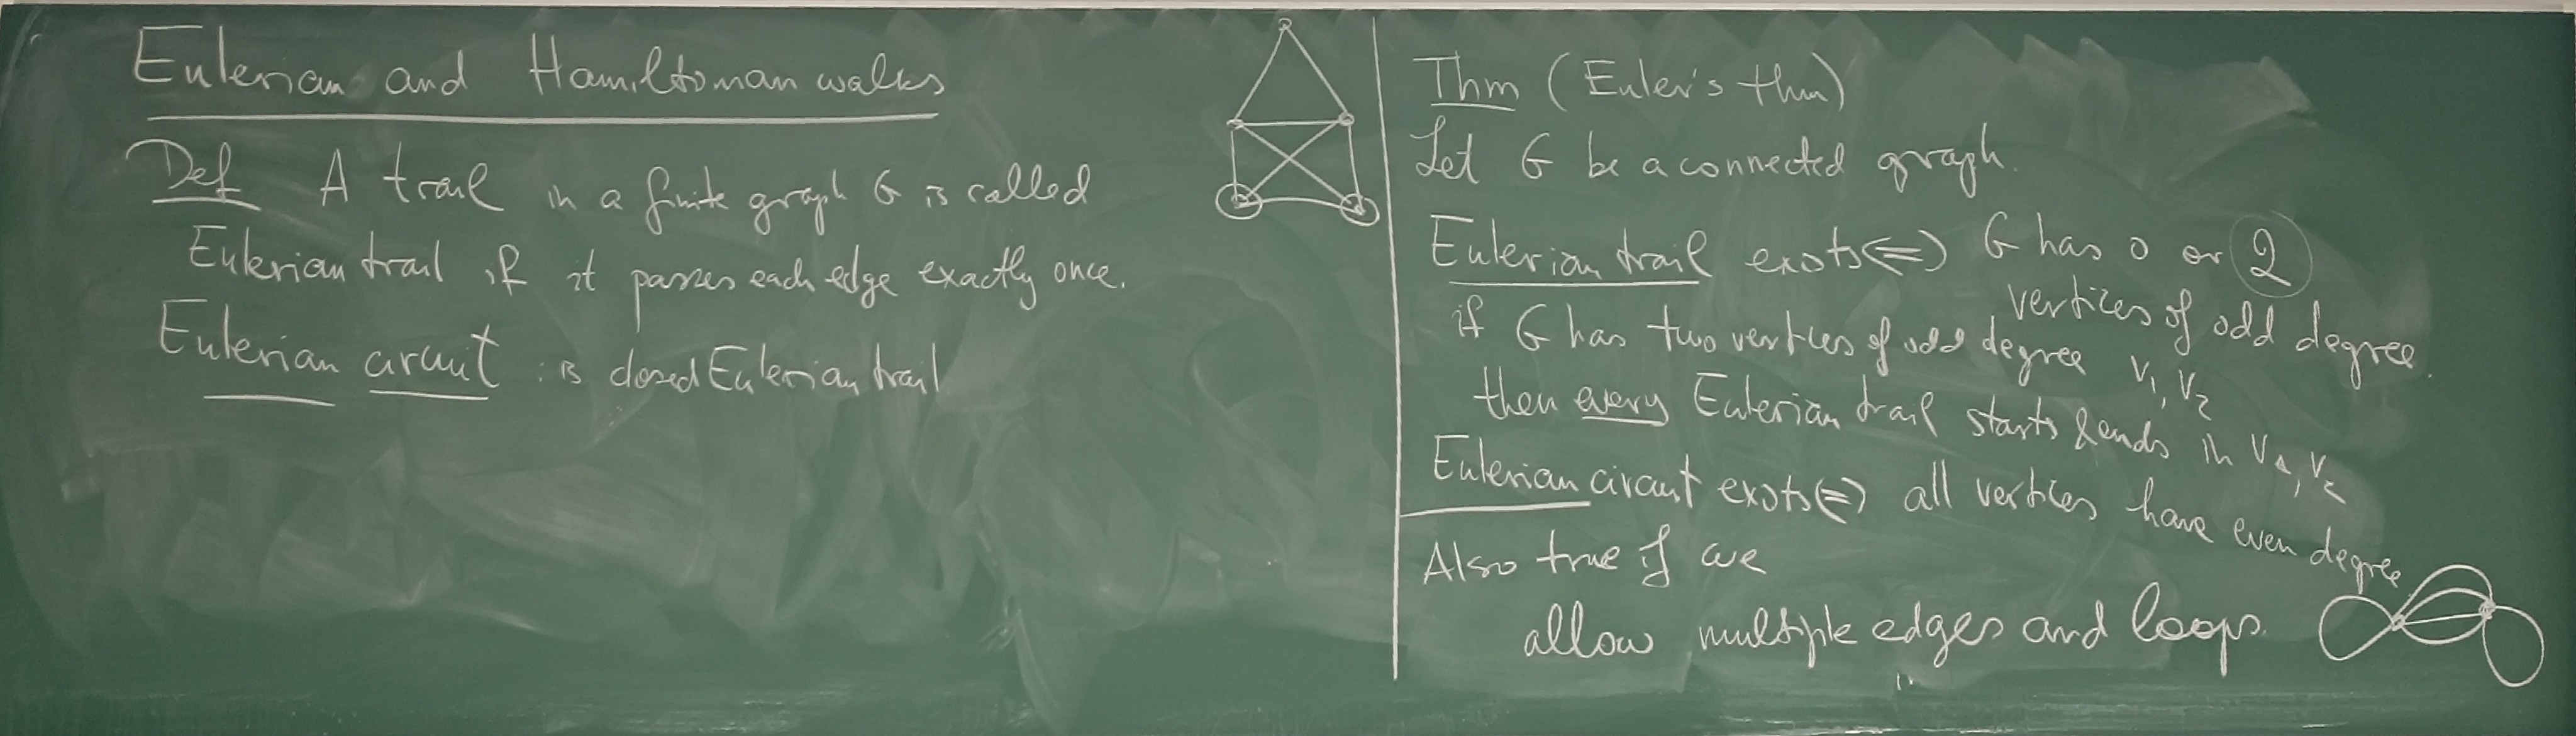 Eulerian and Hamiltonian walks
Def A trail in a finite graph G is called
Eulerian trail if it passes each edge exactly once.
Eulerian circuit : is closed Eulerian trail
Thm (Euler's thm)
Let G be a connected graph.
Eulerian trail exists <=> G has 0 or 2
vertices of odd degree.
if G has two vertices of odd degree v1, v2
then every Eulerian trail starts & ends in v1, v2
Eulerian circuit exists <=> all vertices have even degree
Also true if we
allow multiple edges and loops.